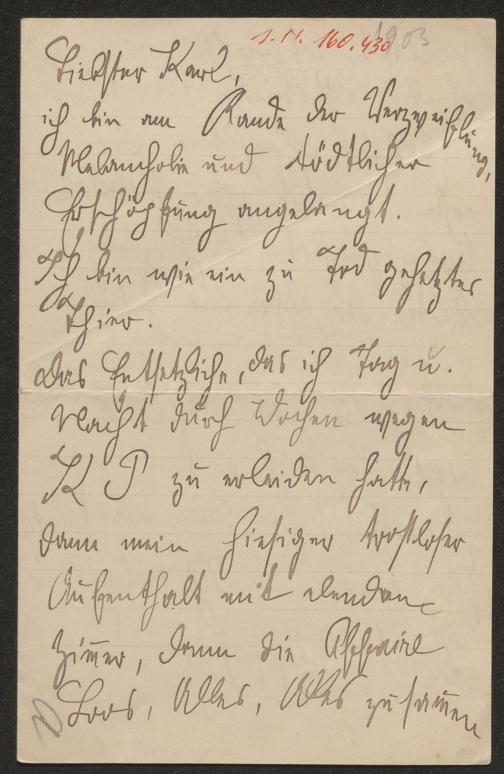 I. N. 160.430
1903
Liebster Karl,
ich bin am Rande der Verzweiflung,
Melancholie und tödtlicher
Erschöpfung angelangt.
Ich bin wie ein zu Tod gehetztes
Thier.
Das Entsetzliche, das ich Tag u.
Nacht durch Wochen wegen
K P zu erleiden hatte,
dann mein hiesiger trostloser
Aufenthalt mit elendem
Zimmer, dann die Affaire
Loos, Alles, Alles zusammen